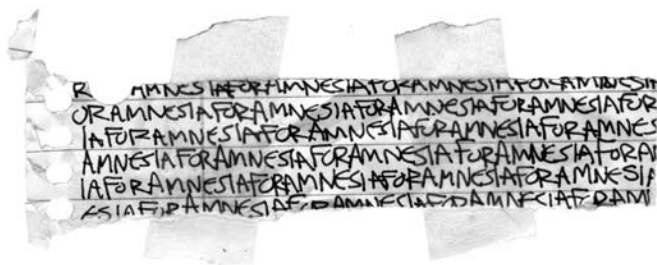 R AMNESIAFORAMNESIAFORAMNESIAFORAMNESIA
ORAMNESIAFORAMNESIAFORAMNESIAFORAMNESIAFOR
IAFORAMNESIAFORAMNESIAFORAMNESIAFORAMNES
AMNESIAFORAMNESIAFORAMNESIAFORAMNESIAFORA
IAFORAMNESIAFORAMNESIAFORAMNESIAFORAMNESIA
ESIAFORAMNESIAFORAMNESIAFORAMNESIAFORAM